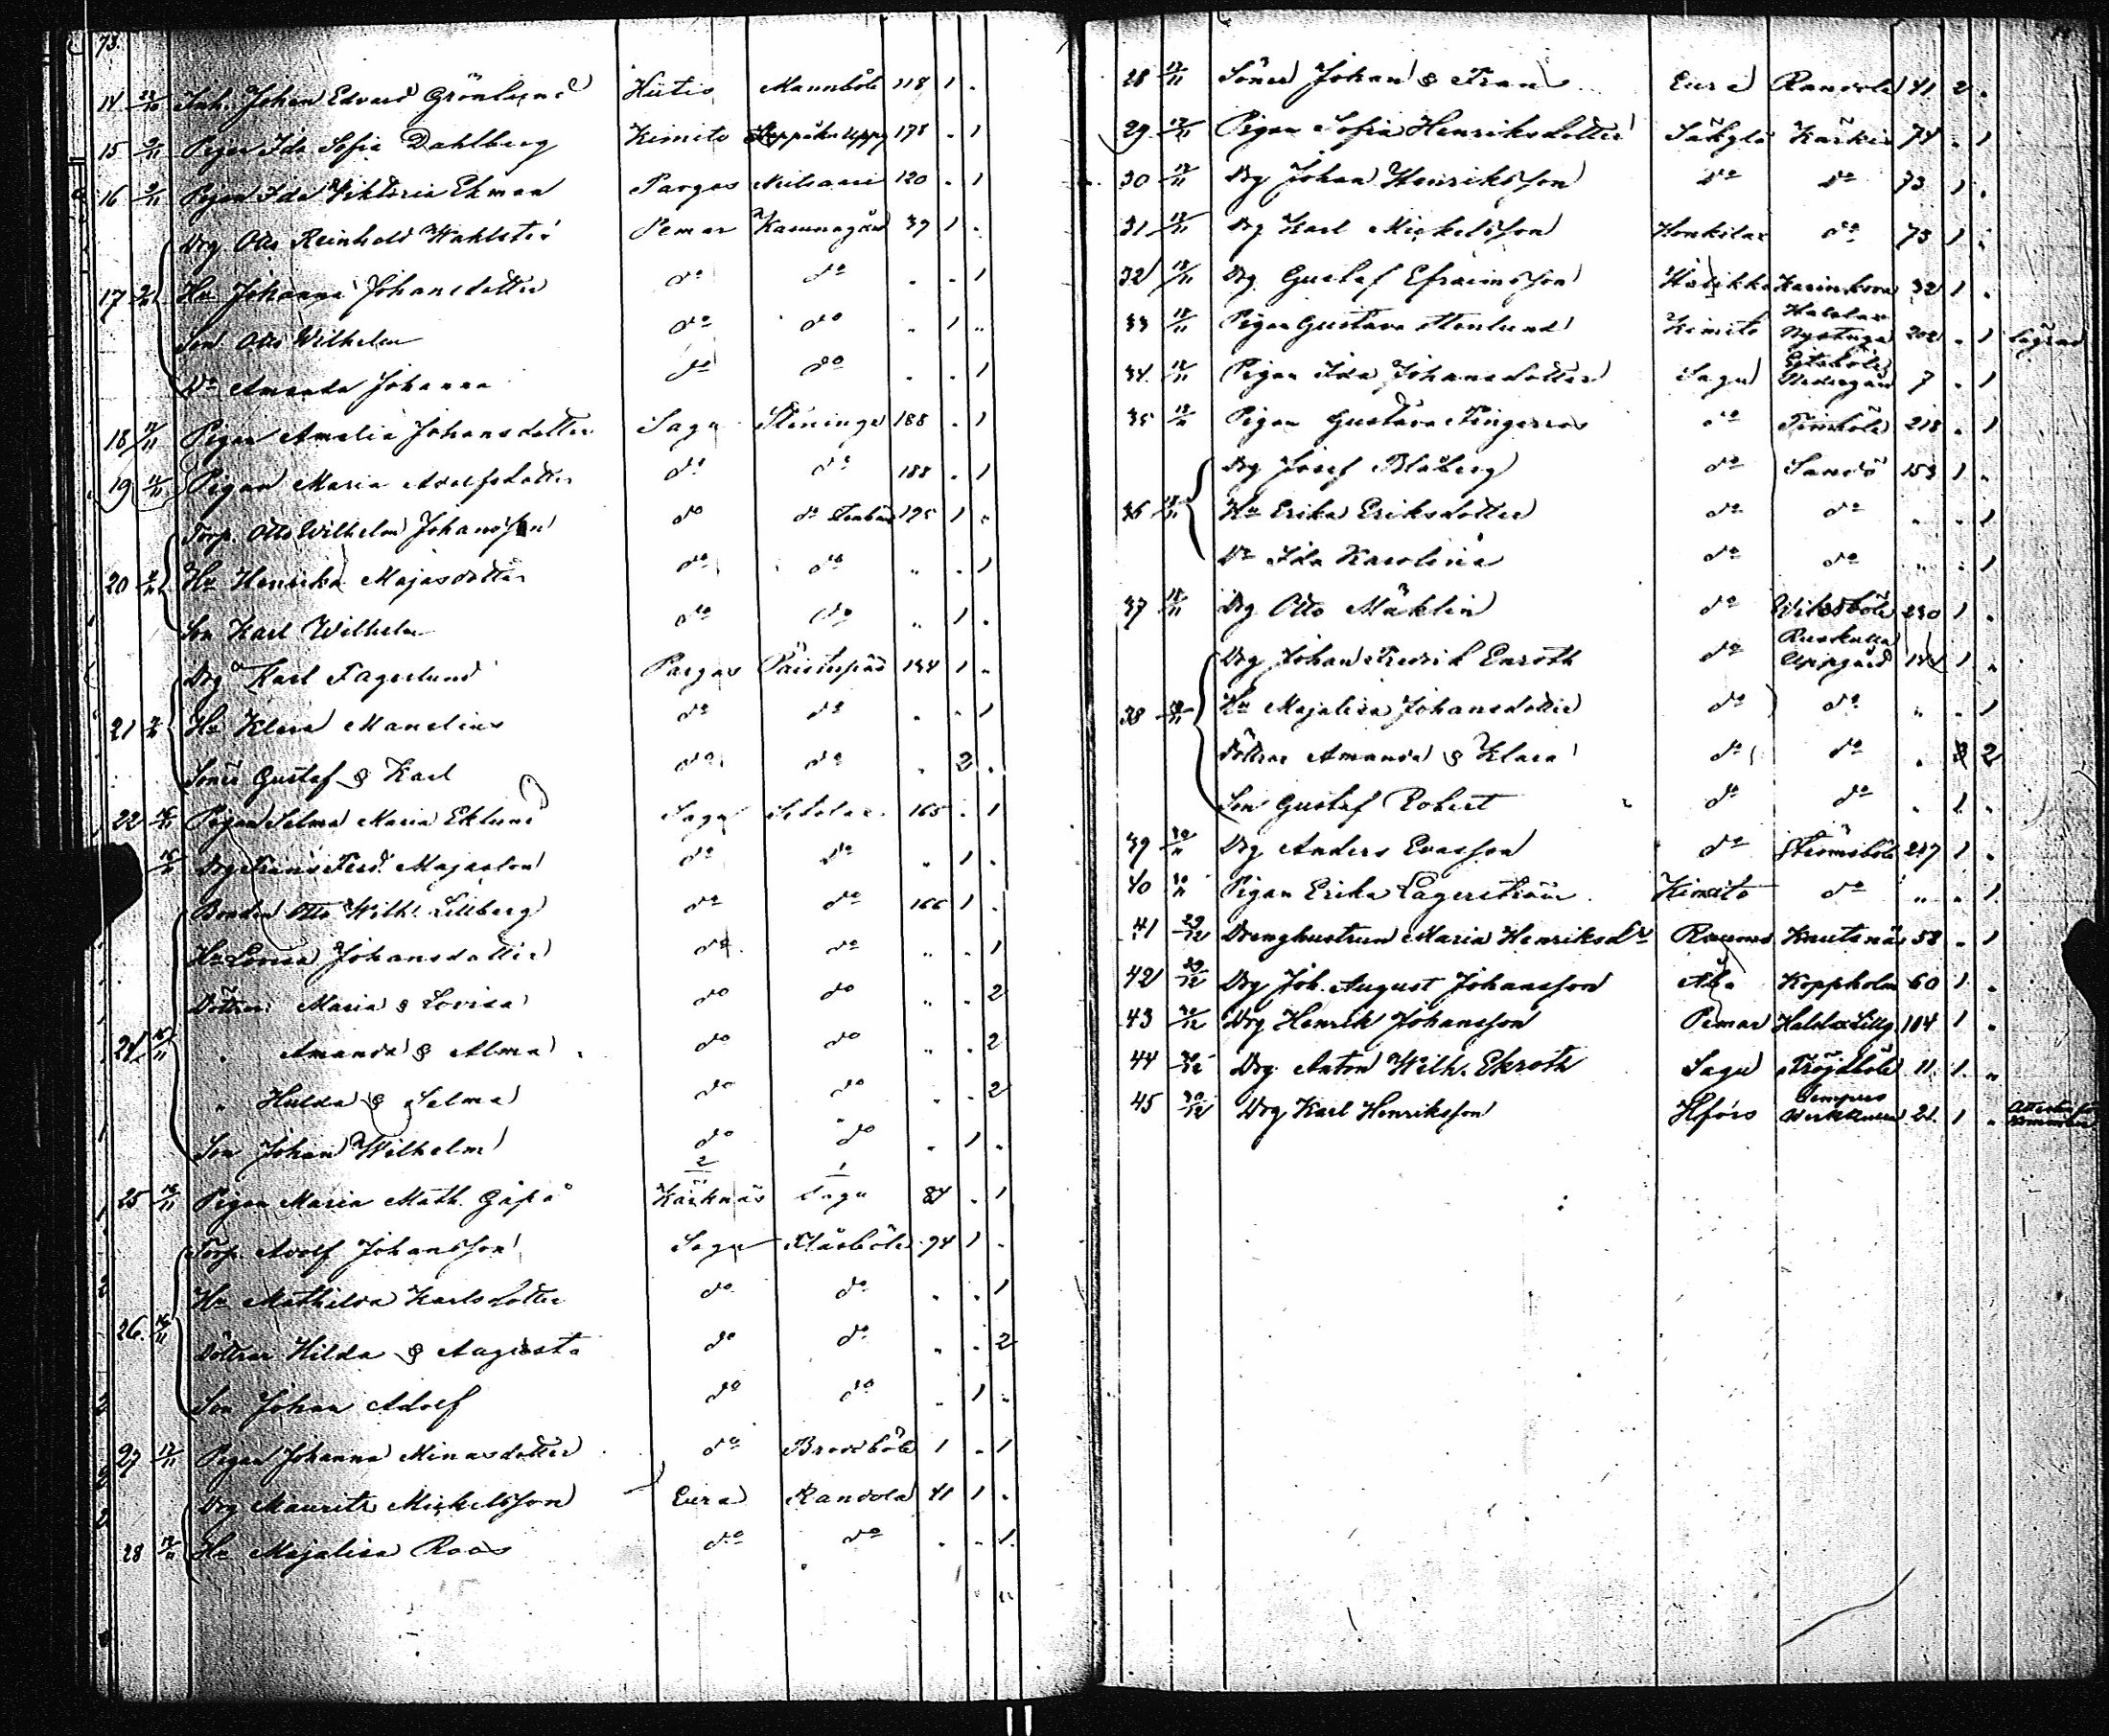 73.
14 23/10 Inh. Johan Edvard Grönlund Hiitis Mannböle 118 1 .
15 9/11 Pigan Ida Sofia Dahlberg Kimito 178 . 1
16 9/11 Pigan Ida Viktoria Ekman Pargas 120 . 1
Drg Otto Reinhold Wahlsten Pemar 39 1 .
17 Hu Johanna Johansdotter do do . . 1
Son Otto Wilhelm do do " 1 "
Dr Amanda Johanna do do . . 1
18 11/11 Pigan Amalia Johansdotter Sagu Pläninge 188 . 1
19 11/11 Pigan Maria Adolfsdotter do do 188 . 1
Torp. Otto Wilhelm Johansson do do 125 1 "
20 Hu Henrika Majasdotter do do " . 1
Son Karl Wilhelm do do " 1 .
Drg Karl Fagerlund Pargas 134 1 "
21 Hu Klara Manelius do do . . 1
Söner Gustaf & Karl do do . 2 .
22 16/11 Pigan Selma Maria Eklund Sagu 165 . 1
16/11 Drg Frans Ferd. Majason do do " 1 .
Bonden Otto Wilh. Lillberg do do 166 1 .
Hu Lovisa Johansdotter do do " . 1
Döttrar Maria & Lovisa do do " . 2
24 16/11 " Amanda & Alma do do " . 2
" Hulda & Selma do do . . 2
Son Johan Wilhelm do do . 1 .
2 1
25 16/11 Pigan Maria Math. Gåpå Karknäs Sagu 84 . 1
Torp. Adolf Johansson Sagu 94 1 .
Hu Mathilda Karlsdotter do do . . 1
26. 16/11 Döttrar Hilda & Augusta do do " . 2
Son Johan Adolf do do " 1 "
27 17/11 Pigan Johanna Minasdotter do Brodböle 1 . 1
Drg Maurits Mickelsson Eura Randola 41 1 .
28 17/11 Hu Majalisa Roos do do . . 1
28 17/11 Söner Johan & Frans Eura Randola 41 2 .
29. 17/11 Pigan Sofia Henriksdotter Säkylä Karkis 74 . 1
30 17/11 Drg Johan Henriksson do do 73 1 .
31 17/11 Drg Karl Mickelsson Honkilax do 73 1 .
32 18/11 Drg Gustaf Efraimsson Halikko 32 1 .
33 18/11 Pigan Gustava Stenlund Kimito Nystuga 202 . 1
34. 18/11 Pigan Ida Johansdotter Sagu Nedregård 7 . 1
35 18/11 Pigan Gustava Fingerroos do 218 . 1
Drg Josef Blåberg do Sandö 153 1 .
36 18/11 Hu Erika Eriksdotter do do " . 1
Dr Ida Karolina do do " . 1
37 18/11 Drg Otto Mäklin do Wiksböle 230 1 .
Drg Johan Fredrik Enroth do Uppgård 1 .
38 18/11 Hu Majalisa Johansdotter do do " . 1
Döttrar Amanda & Klara do do . 2
Son Gustaf Robert do do . 1 .
39 30/11 Drg Anders Evasson do Strömsböle 217 1 .
40 30/11 Pigan Erika Lagerström Kimito do " . 1
41 29/12 Drenghustrun Maria Henriksdr Raumo Knutsnäs 58 . 1
42 29/12 Drg Joh. August Johansson Åbo Koppholm 60 1 .
43 Drg Henrik Johansson Pemar 104 1 .
44 30/12 Drg Anton Wilh. Ekroth Sagu Fröjdböle 11. 1. "
45 30/12 Drg Karl Henriksson Hfors 21. 1 "